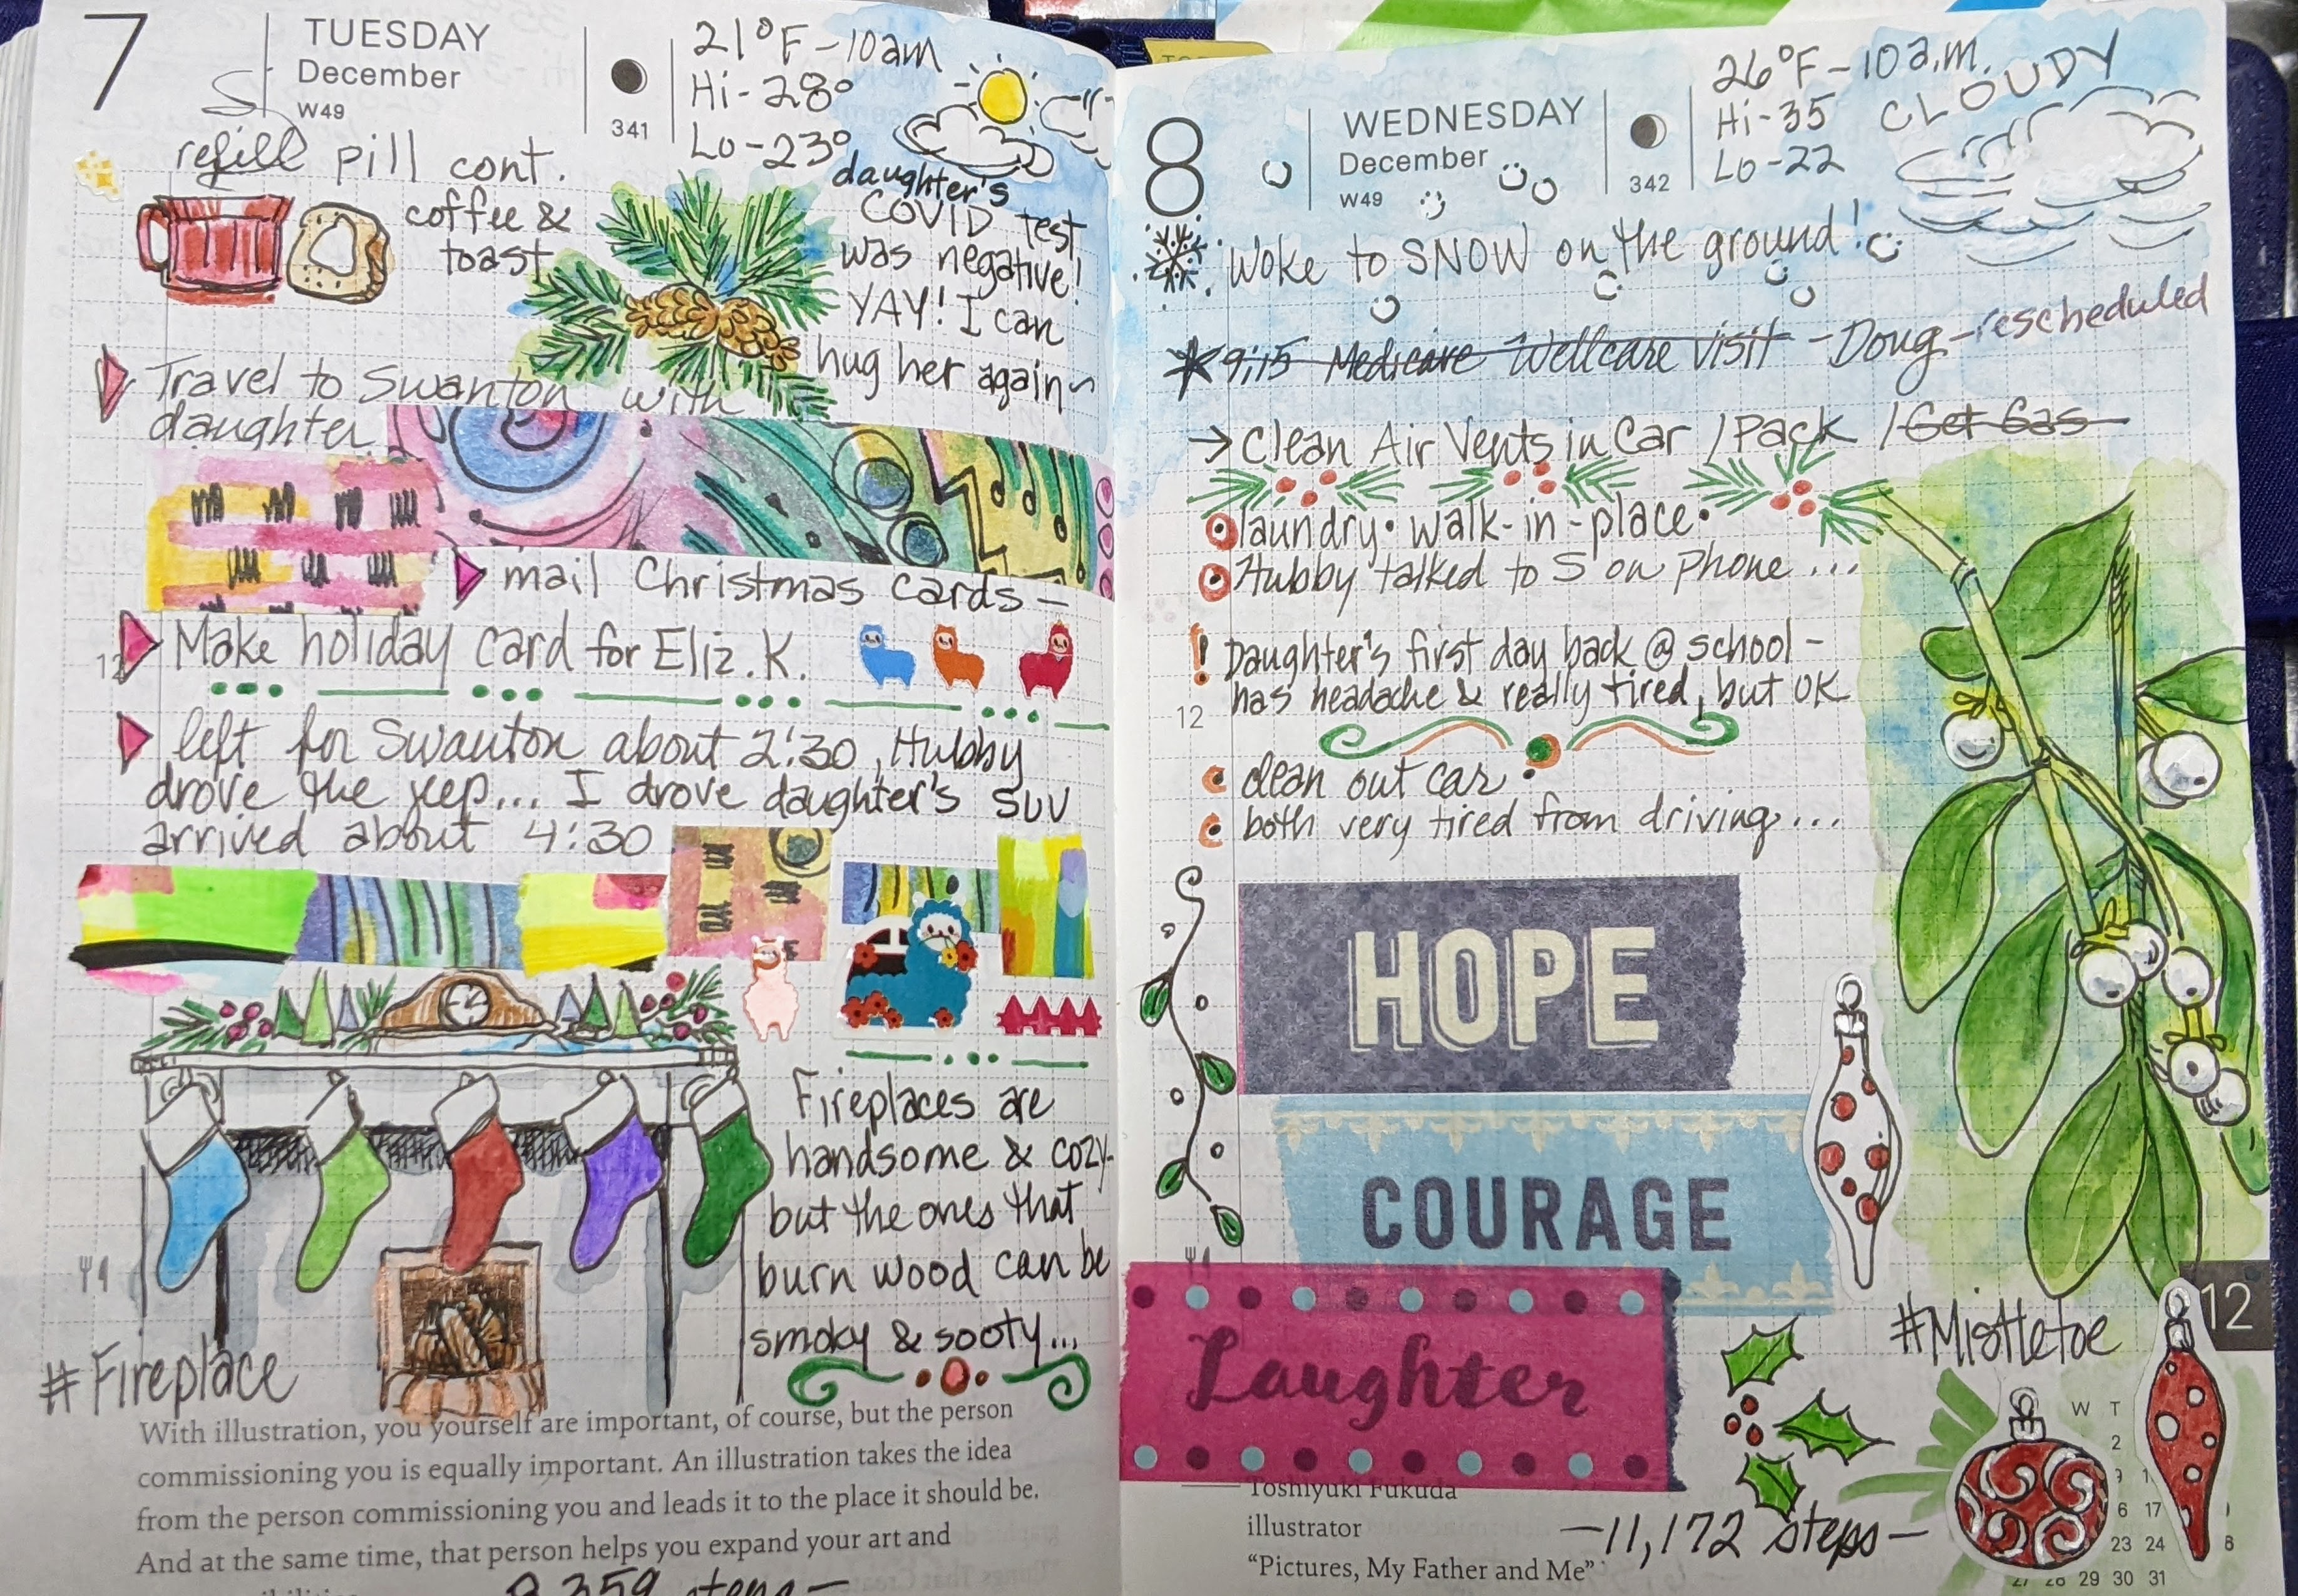 7
TUESDAY
December
W49
341
21°F-10am
Hi-28°
Lo-23°
refill pill cont.
coffee &
toast
daughter's
COVID test
was negative!
YAY! I can
hug her again~
Travel to Swanton with
daughter
mail Christmas cards-
12
Make holiday card for Eliz. K.
left for Swanton about 2:30, Hubby
drove the jeep... I drove daughter's SUV
arrived about 4:30
Fireplaces are
handsome & cozy-
but the ones that
burn wood can be
smoky & sooty...
#Fireplace
With illustration, you yourself are important, of course, but the person
commissioning you is equally important. An illustration takes the idea
from the person commissioning you and leads it to the place it should be.
And at the same time, that person helps you expand your art and
steps-
8
WEDNESDAY
December
W49
342
26°F-10a.m.
Hi-35
Lo-22
CLOUDY
Woke to SNOW on the ground!
9:15 Medicare Wellcare visit -Doug-rescheduled
→Clean Air Vents in Car /Pack /Get Gas
laundry• walk-in-place•
Hubby talked to S on phone...
! Daughter's first day back @ school-
has headache & really tired, but OK
12
clean out car
both very tired from driving...
HOPE
COURAGE
Laughter
#Mistletoe
12
W T
2
6 17
23 24
27 28 29 30 31
Toshiyuki Fukuda
illustrator
"Pictures, My Father and Me"
-11,172 steps-